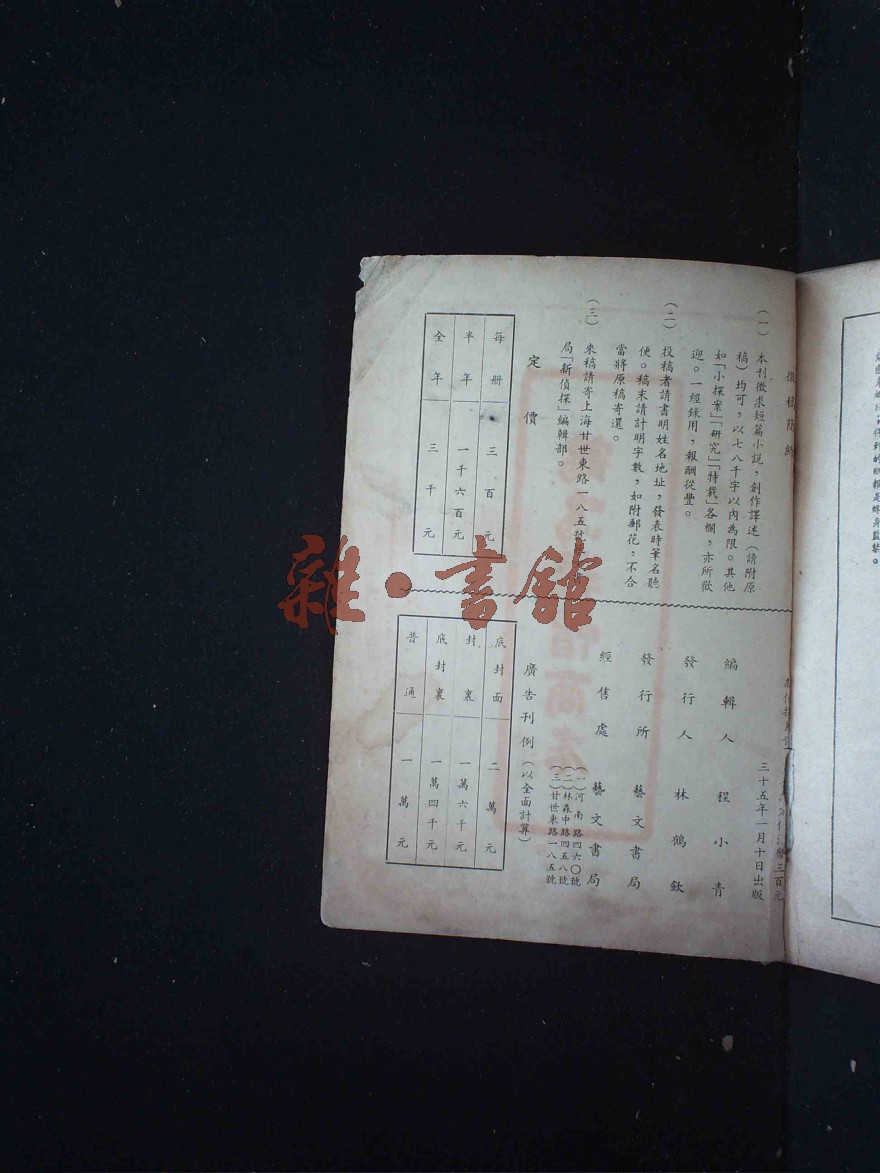 徵稿簡約
(一) 本刊徵求短篇小說，創作譯述（請附原
稿）均可，以七八千字以內為限。其他
如「小探案」「研究」「特載」各欄，亦所歡
迎。一經錄用，報酬從豐。
(二) 投稿者請書明姓名地址，發表時筆名聽
便。稿末請計明字數，如附郵花，不合
當將原稿寄還。
(三) 來稿請寄上海甘世東路一八五號
局「新偵探」編輯部。
定價
每册 三百元
半年 一千六百元
全年 三千元
三百元
三十五年一月十日出版
編輯人 程小青
發行人 林鶴欽
發行所 藝文書局
經售處 藝文書局
(一)河南路四六〇號
(二)林森中路四五八號
(三)甘世東路一八五號
廣告刊例（以全面計算）
底封面 二萬元
封裏 一萬六千元
底封裏 一萬四千元
普通 一萬元
雜·書館